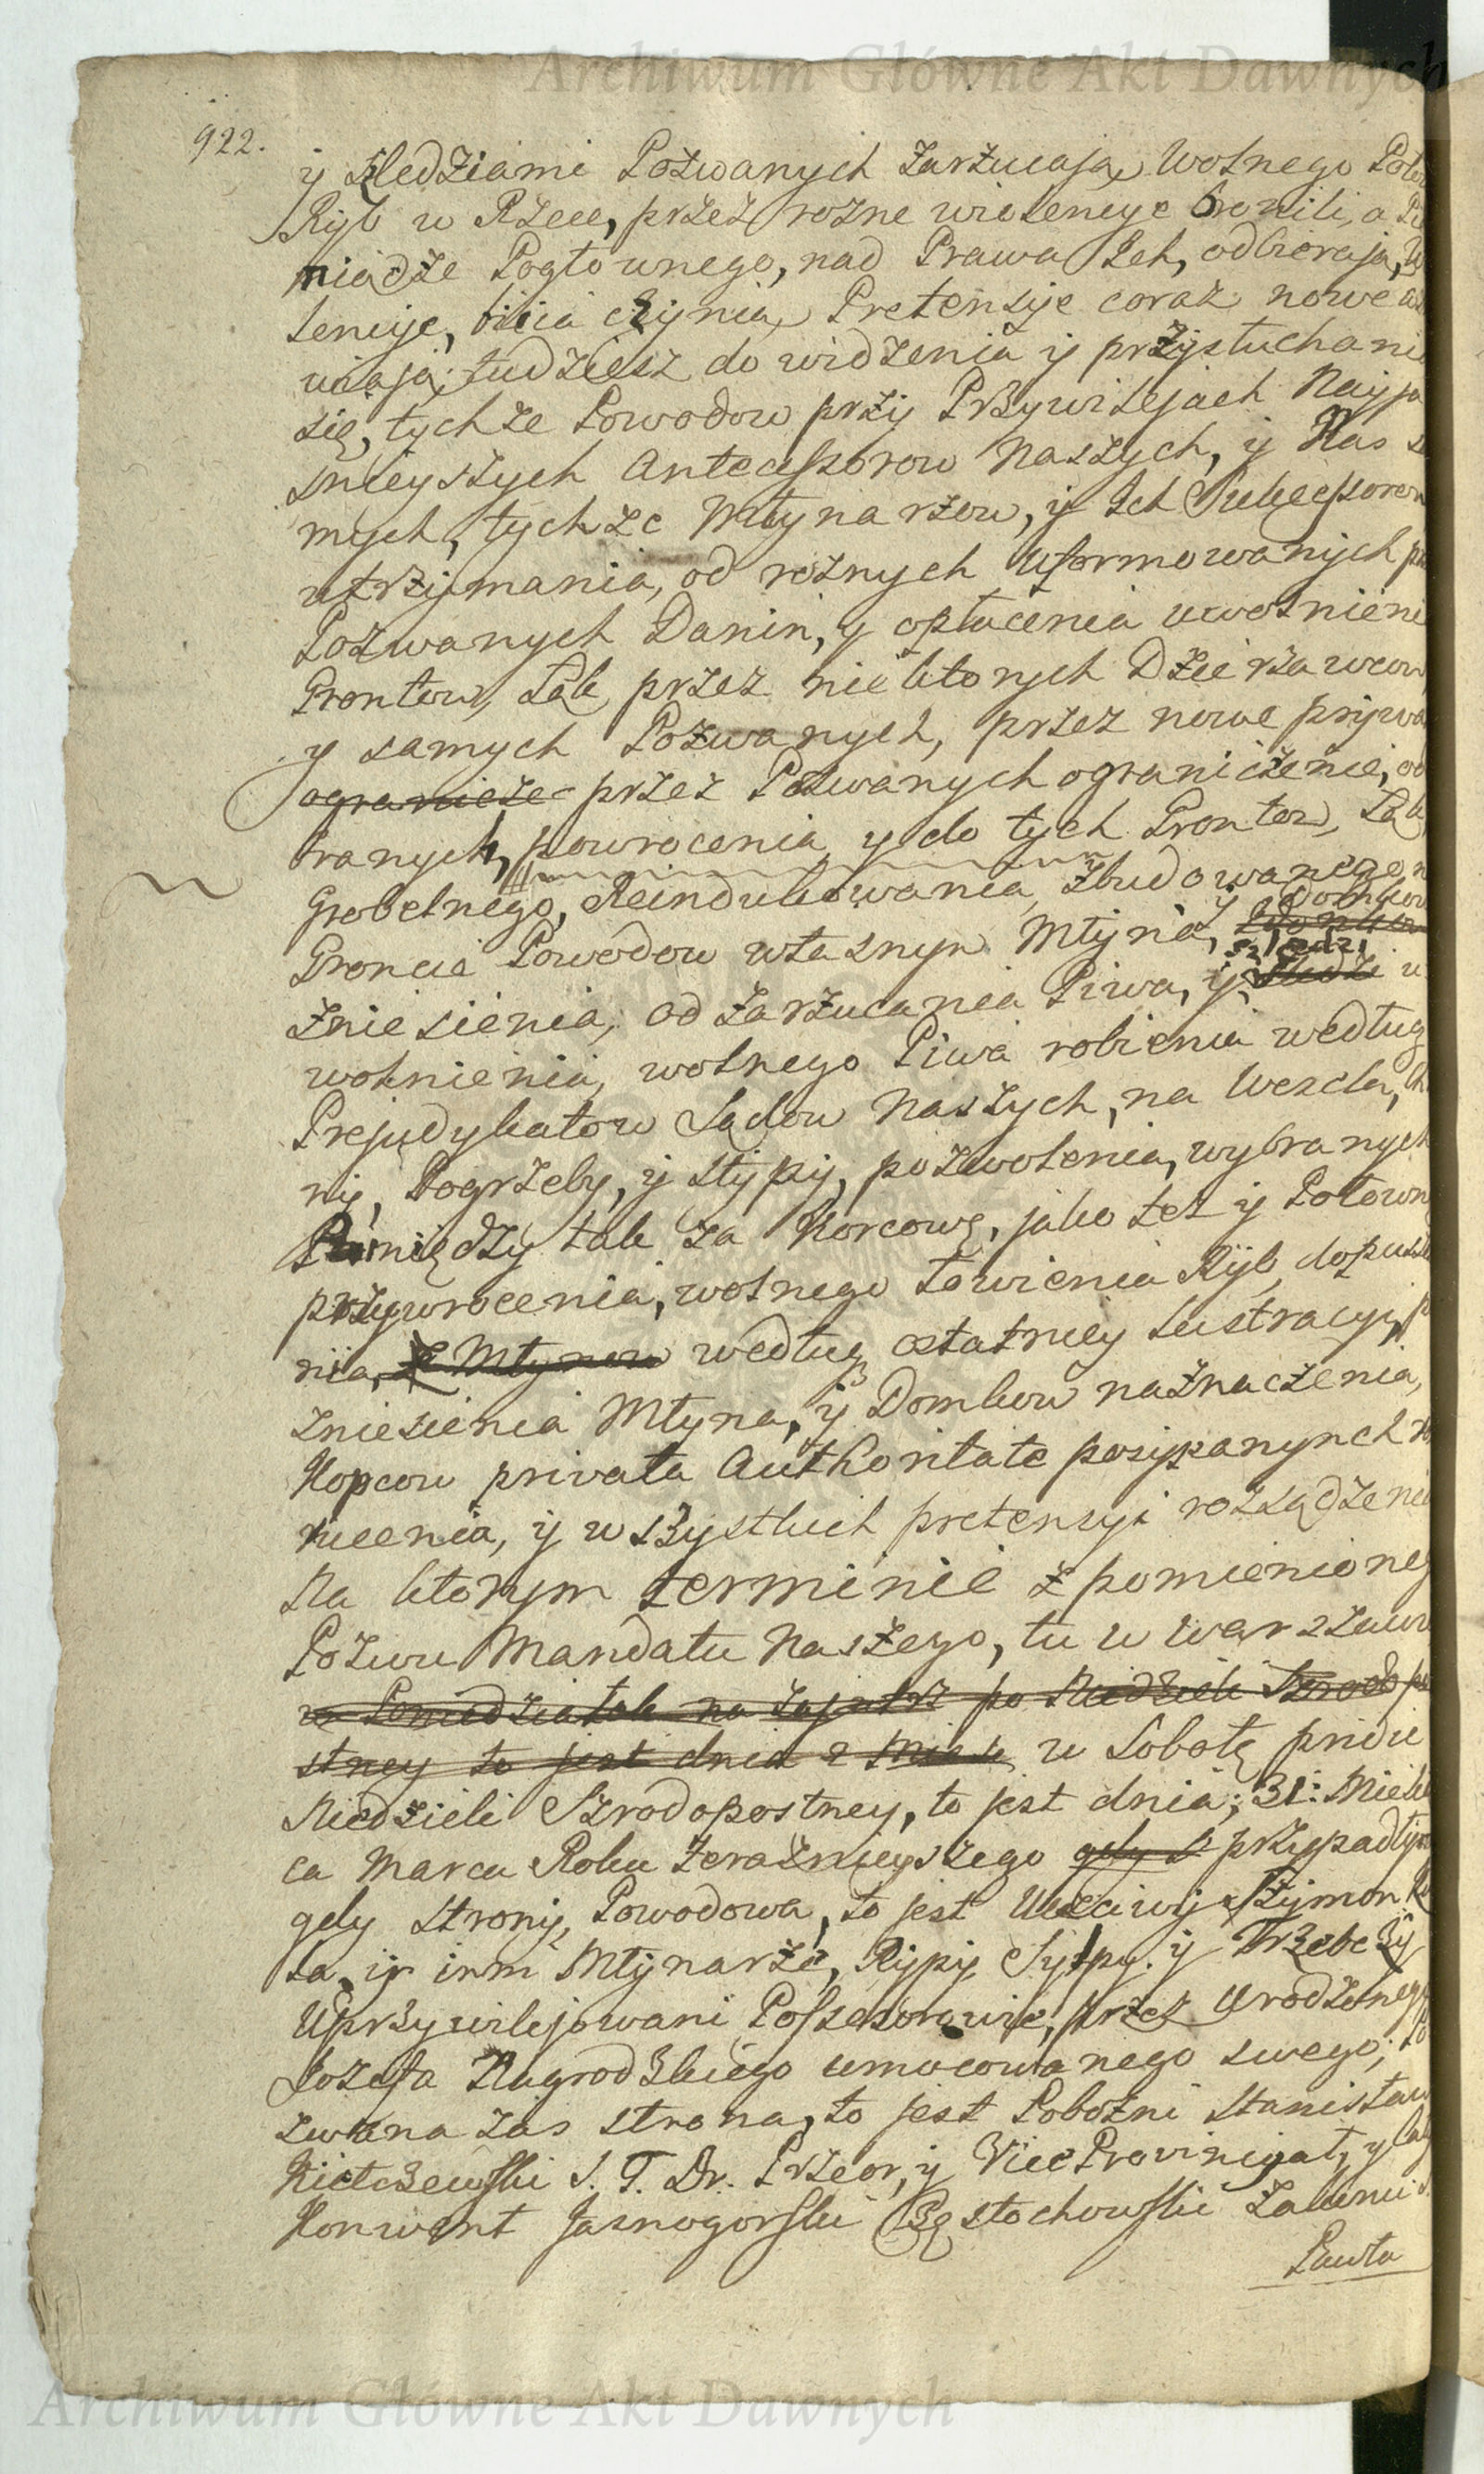 Archiwum Główne Akt Dawnych
922.
y Sledziami Pozwanych zarzucaią, Wolnego Poło
Ryb w Rzece, przez rozne wiolencye bronili, a Pie
niądze Pogłownego, nad Prawa Ich, odbieraią,
lencye, bicia czynią, Pretensye coraz nowe
uiaią; tudziesz do widzenia y przysłuchani
się, tychże Powodow przy Przywilejach Nayja
snieyszych Antecessorow Naszych, y Nas sa
mych, tychże Młynarzow, y Ich Sukcessorow
utrzymania, od roznych uformowanych
Pozwanych Danin, y opłacenia uwolnieni
Grontow, Łąk, przez niektorych Dzierzawcow
y samych Pozwanych, przez nowe prywa
ogranicze przez Pozwanych ograniczenie, od
branych, powrocenia, y do tych Grontow, Łąk
Grobelnego, Reindukowania, zbudowanego n
Groncie Powodow własnym Młyna, y Domkow
zniesienia, od zarzucania Piwa, y szledzi u
wolnienia, wolnego Piwa robienia według
Prejudykatow Sądow Naszych, na Wesela, Ch
ny, Pogrzeby, y stypy, pozwolenia, wybranych
Pieniędzy tak za Korcowę, jako tez y Połown
przywrocenia, wolnego Łowienia Ryb, dopuszcze
nia, z Młynow według ostatniey Lustracyi, p
zniesienia Młyna, y Domkow naznaczenia,
Kopcow privata Authoritate posypanynch
rucenia, y wszystkich pretensyi rozsądzenie
Na ktorym terminie z pomienioneg
Pozwu Mandatu Naszego, tu w Warszawie
w Poniedziałek na zajutrz po Niedzieli Szrodo po
stney to jest dnia 2 Mies w Sobotę pridie
Niedzieli Szrodopostney, to jest dnia; 31: Miesią
ca Marca Roku terazniejszego gdy s przypadłym
gdy strony, Powodowa, to jest Uczciwy Szymon
la, y inni Młynarze, Rypy Sylpy. y Trzebczy
Uprzywilejowani Possessorowie, przez Urodzonego
Jozefa Nagrodzkiego umocowanego swego; Po
zwana zas strona, to jest Pobozni Stanisław
Kiełczewski S. T. Dr. Przeor, y Vice Prowincyał, y cały
Konwent Jasnogorski Częstochowski Zakonu S.
Pawła
Archiwum Główne Akt Dawnych